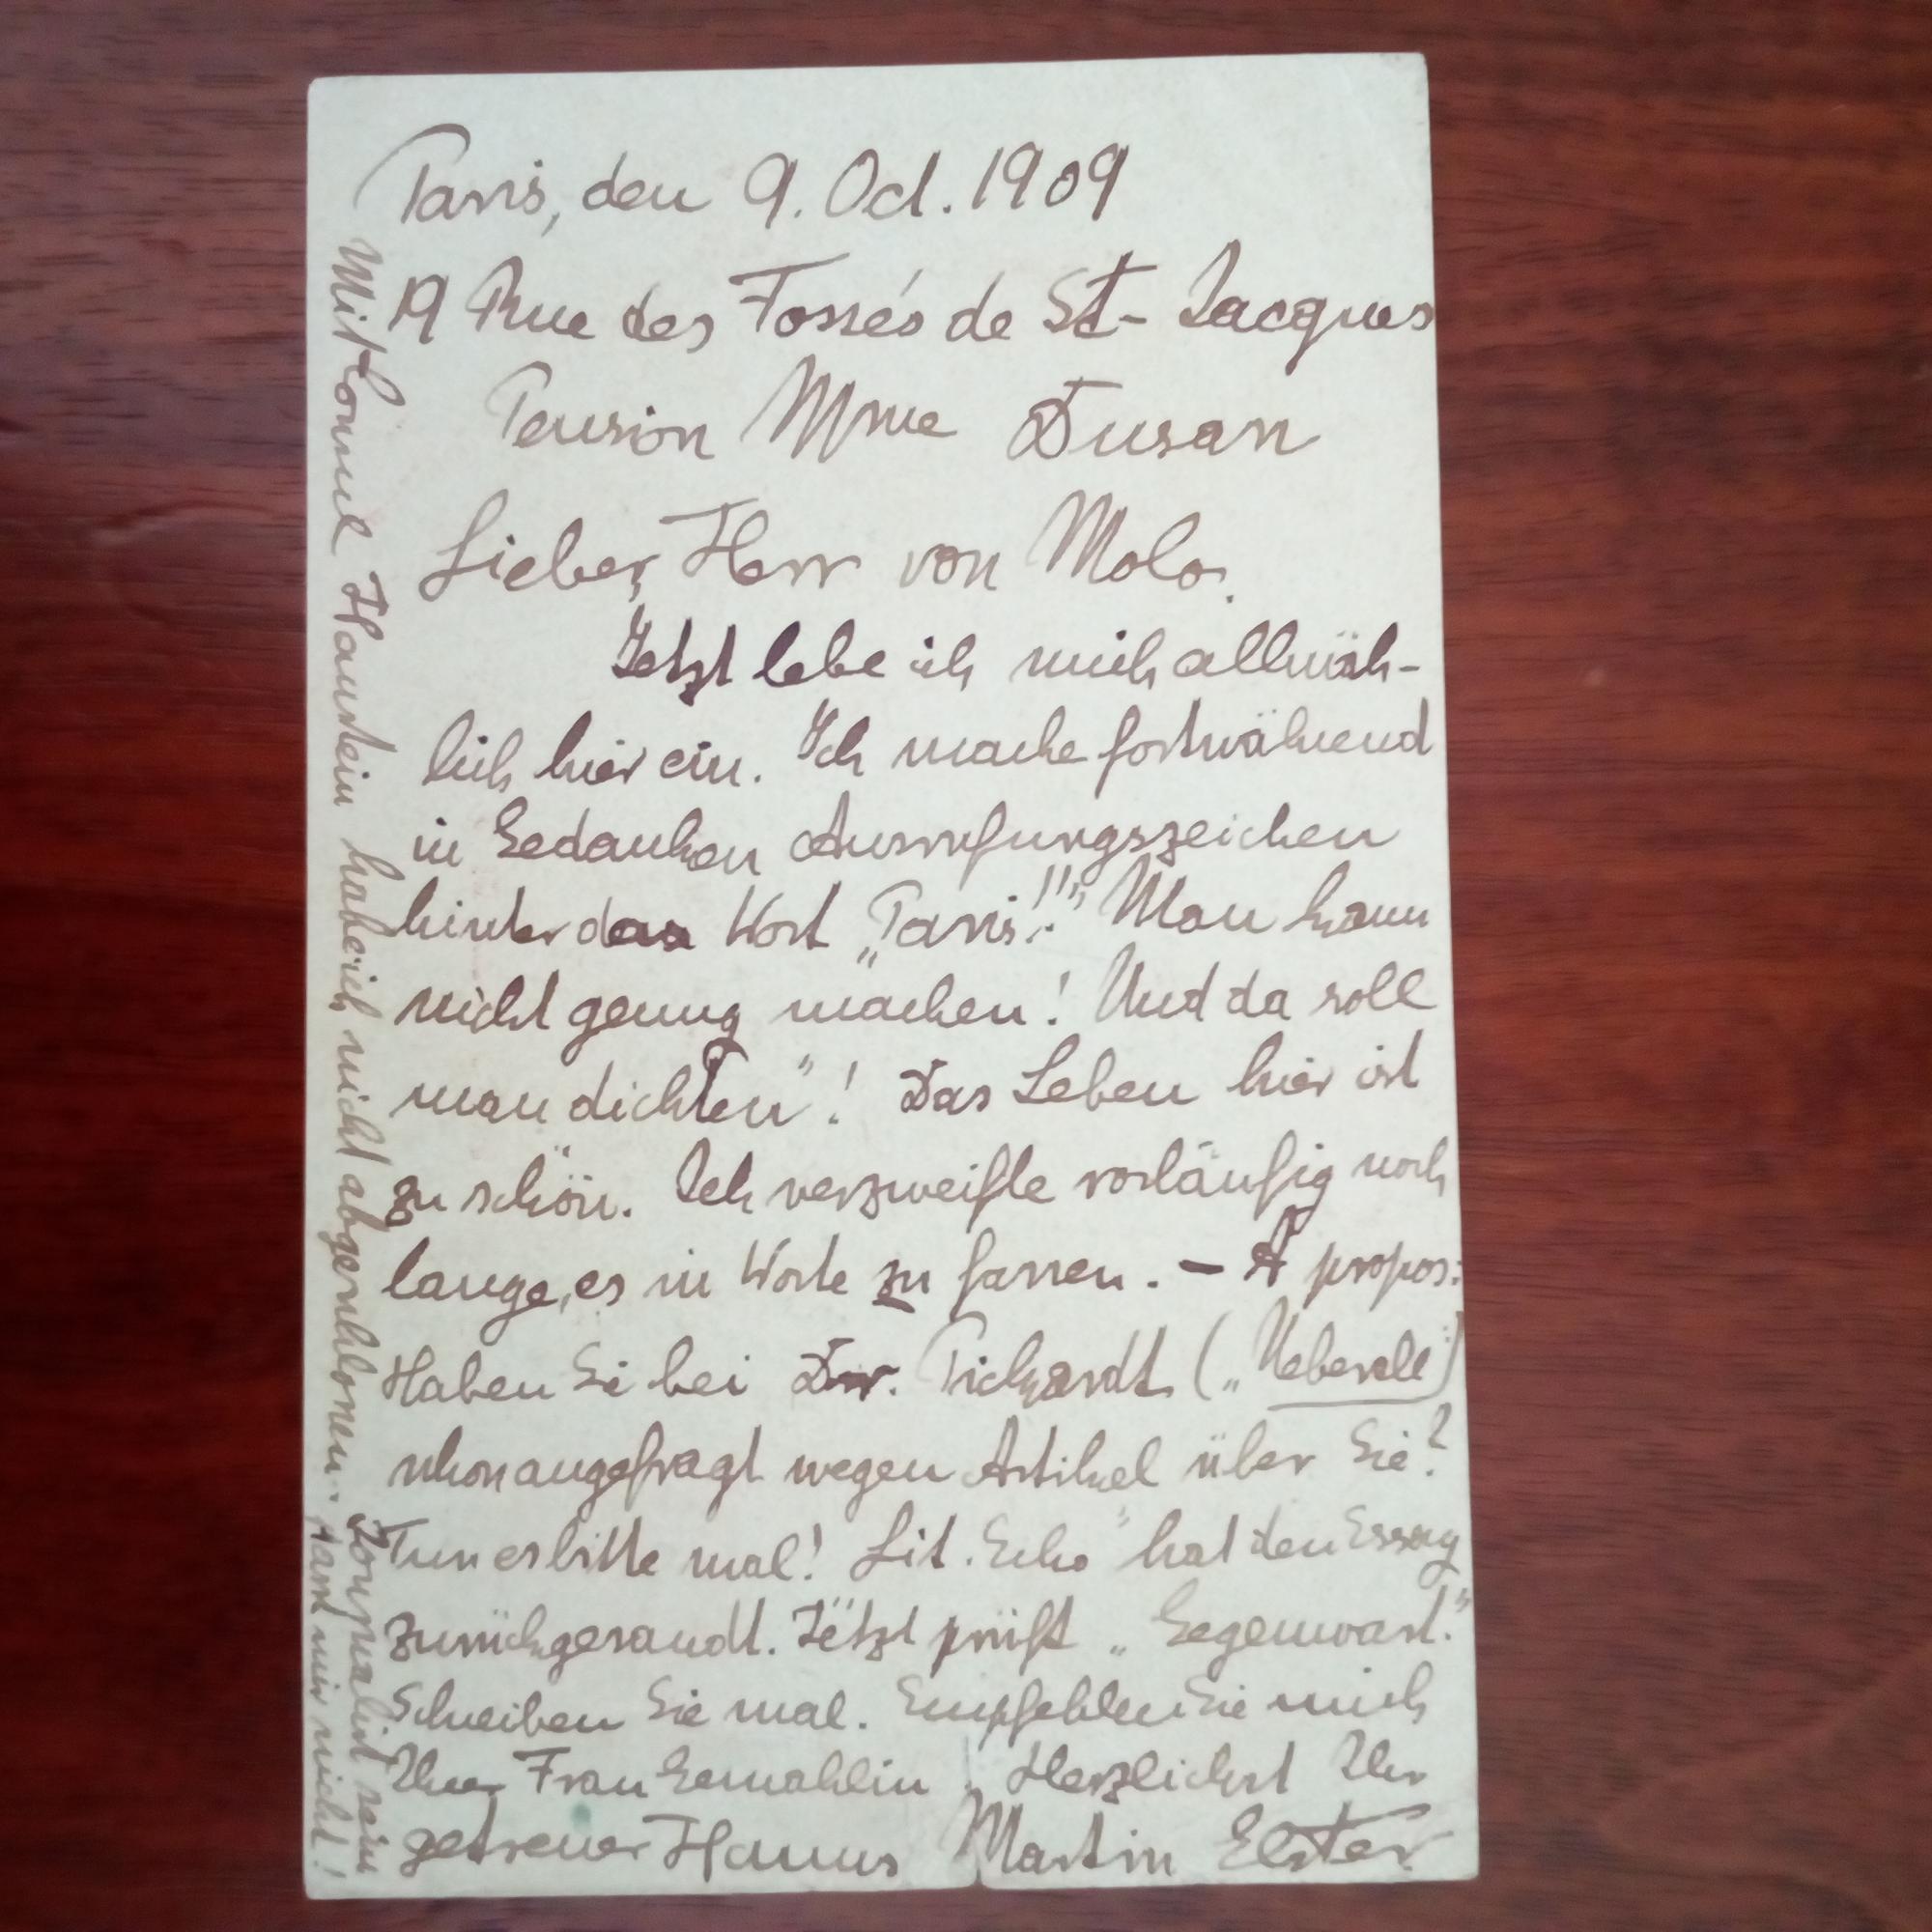 Paris, den 9. Oct. 1909
19 Rue des Fossés de St- Jacques
Pension Mme Dusan
Lieber, Herr von Molo.
Jetzt lebe ich mich allmäh-
lich hier ein. Ich mache fortwährend
in Gedanken Ausrufungszeichen
hinter das Wort „Paris!!!“ Man kann
nicht genug machen! Und da soll
man dichten“! Das Leben hier ist
zu schön. Ich verzweifle vorläufig noch
lange, es in Worte zu fassen. – A propos:
Haben Sie bei Dr. (Ueberall)
schon angefragt wegen Artikel über Sie?
Tun es bitte mal! Lit. Echo“ hat den Essay
zurückgesandt. Jetzt prüft „Gegenwart.“
Schreiben Sie mal. Empfehlen Sie mich
Ihrer Frau Gemahlin. Herzlichst Ihr
getreuer Hanns Martin Elster
Mit Hanstein habe ich nicht abgeschlossen.
Journalist sein
passt mir nicht!